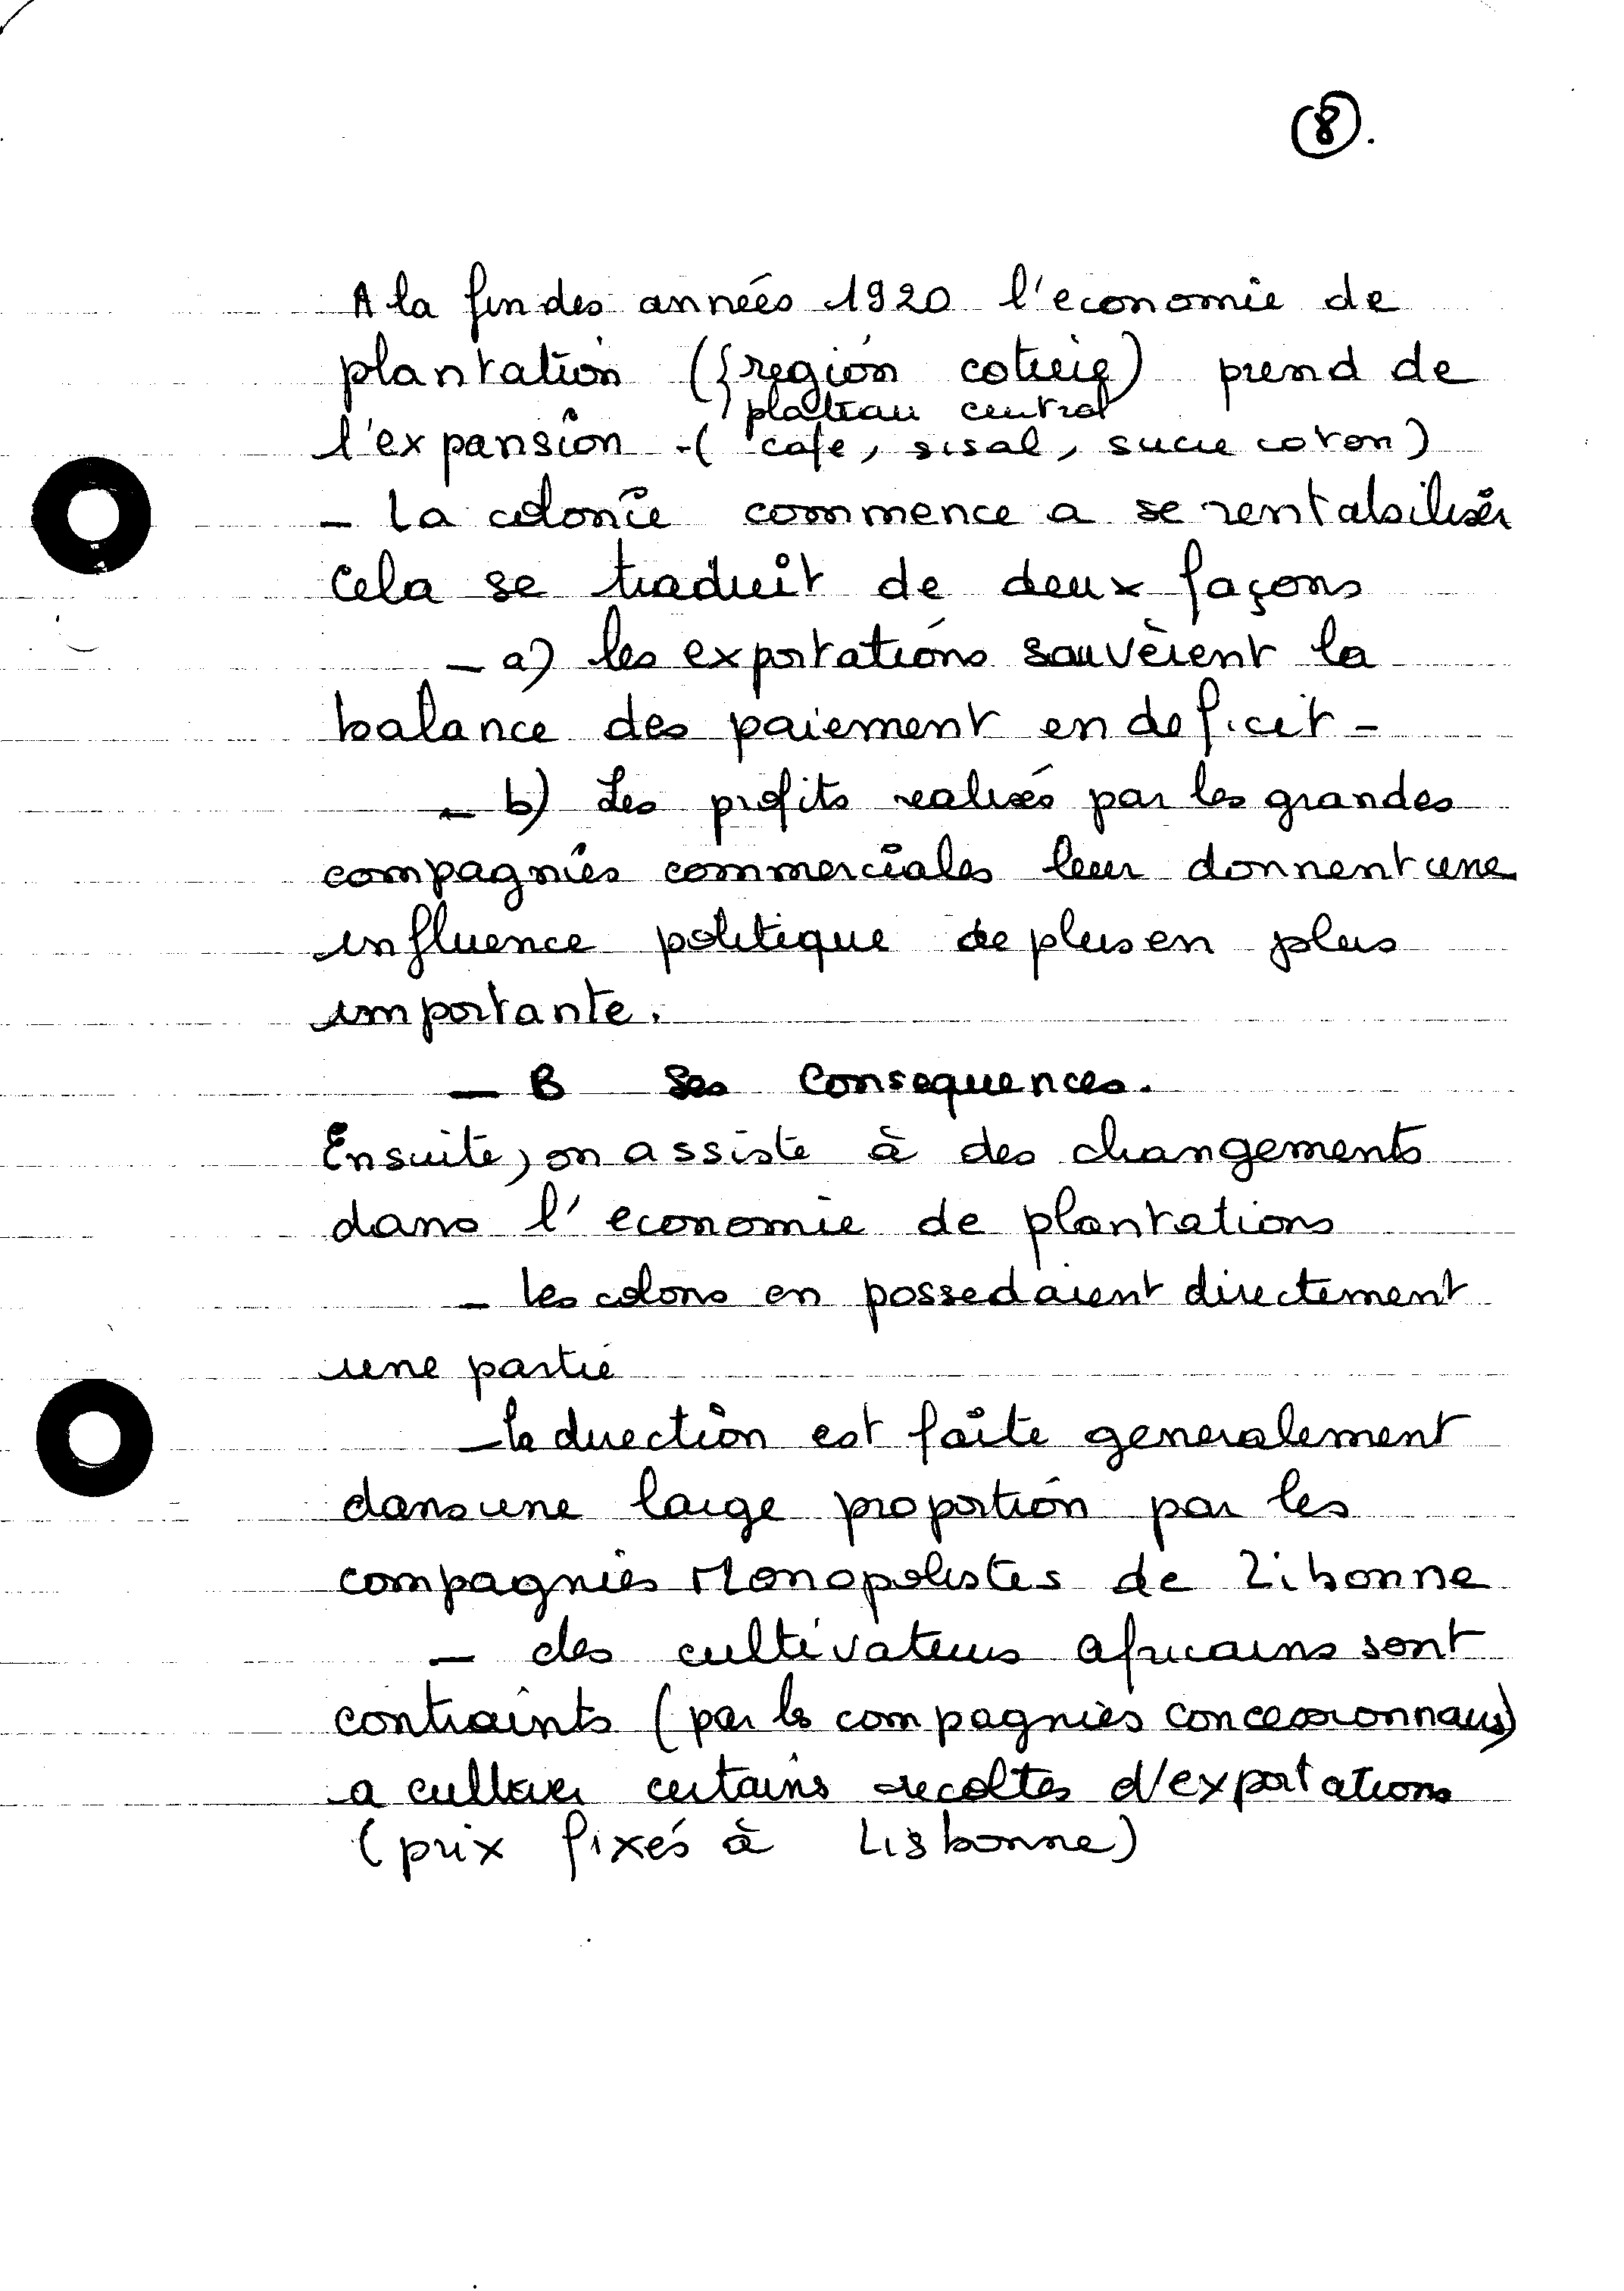 8.
A la fin des années 1920 l'economie de
plantation ({région cotière) prend de
plateau central
l'expansion -( café, sisal, sucre coton)
- La colonie commence a se rentabiliser
Cela se traduit de deux façons
- a) les exportations sauvèrent la
balance des paiement en deficit -
- b) Les profits realisés par les grandes
compagnies commerciales leur donnent une
influence politique de plus en plus
importante.
- B Ses Consequences.
Ensuite, on assiste à des changements
dans l'economie de plantations
- les colons en possedaient directement
une partie
- la direction est faite generalement
dans une large proportion par les
compagnies Monopolistes de Lisbonne
- des cultivateurs africains sont
contraints (par les compagnies concessionnaires)
a cultiver certains recoltes d'exportations
(prix fixés à Lisbonne)